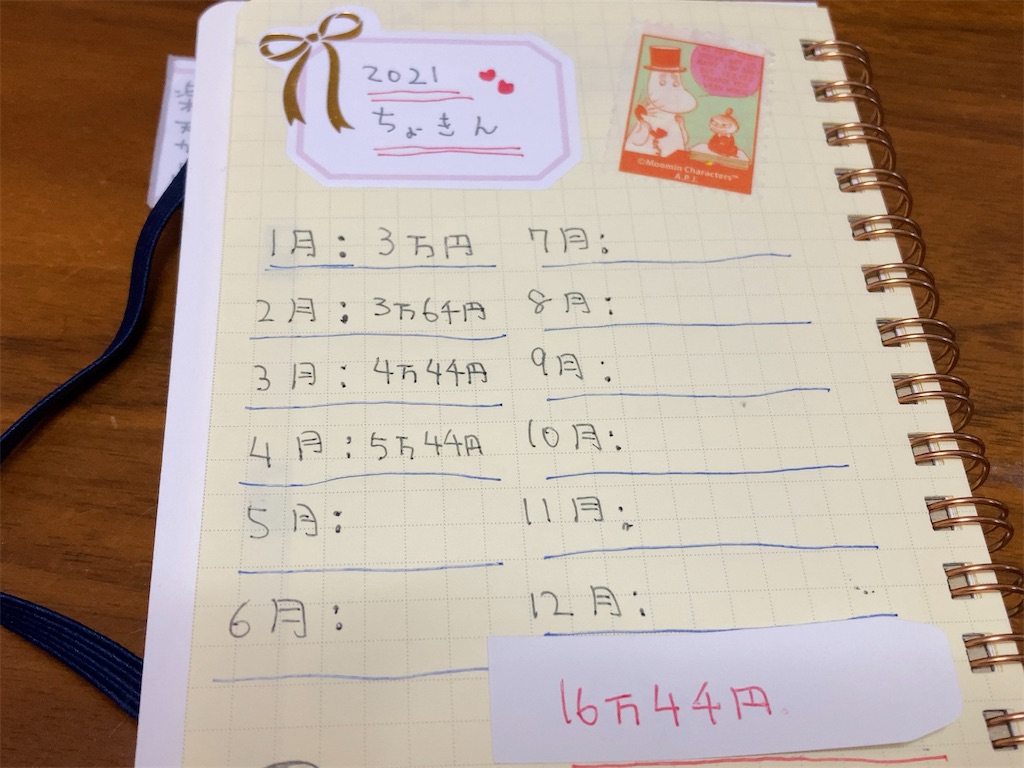 2021
ちょきん
©Moomin Characters™
A.P.I.
1月: 3万円
2月: 3万64円
3月: 4万44円
4月: 5万44円
5月:
6月:
7月:
8月:
9月:
10月:
11月:
12月:
16万44円